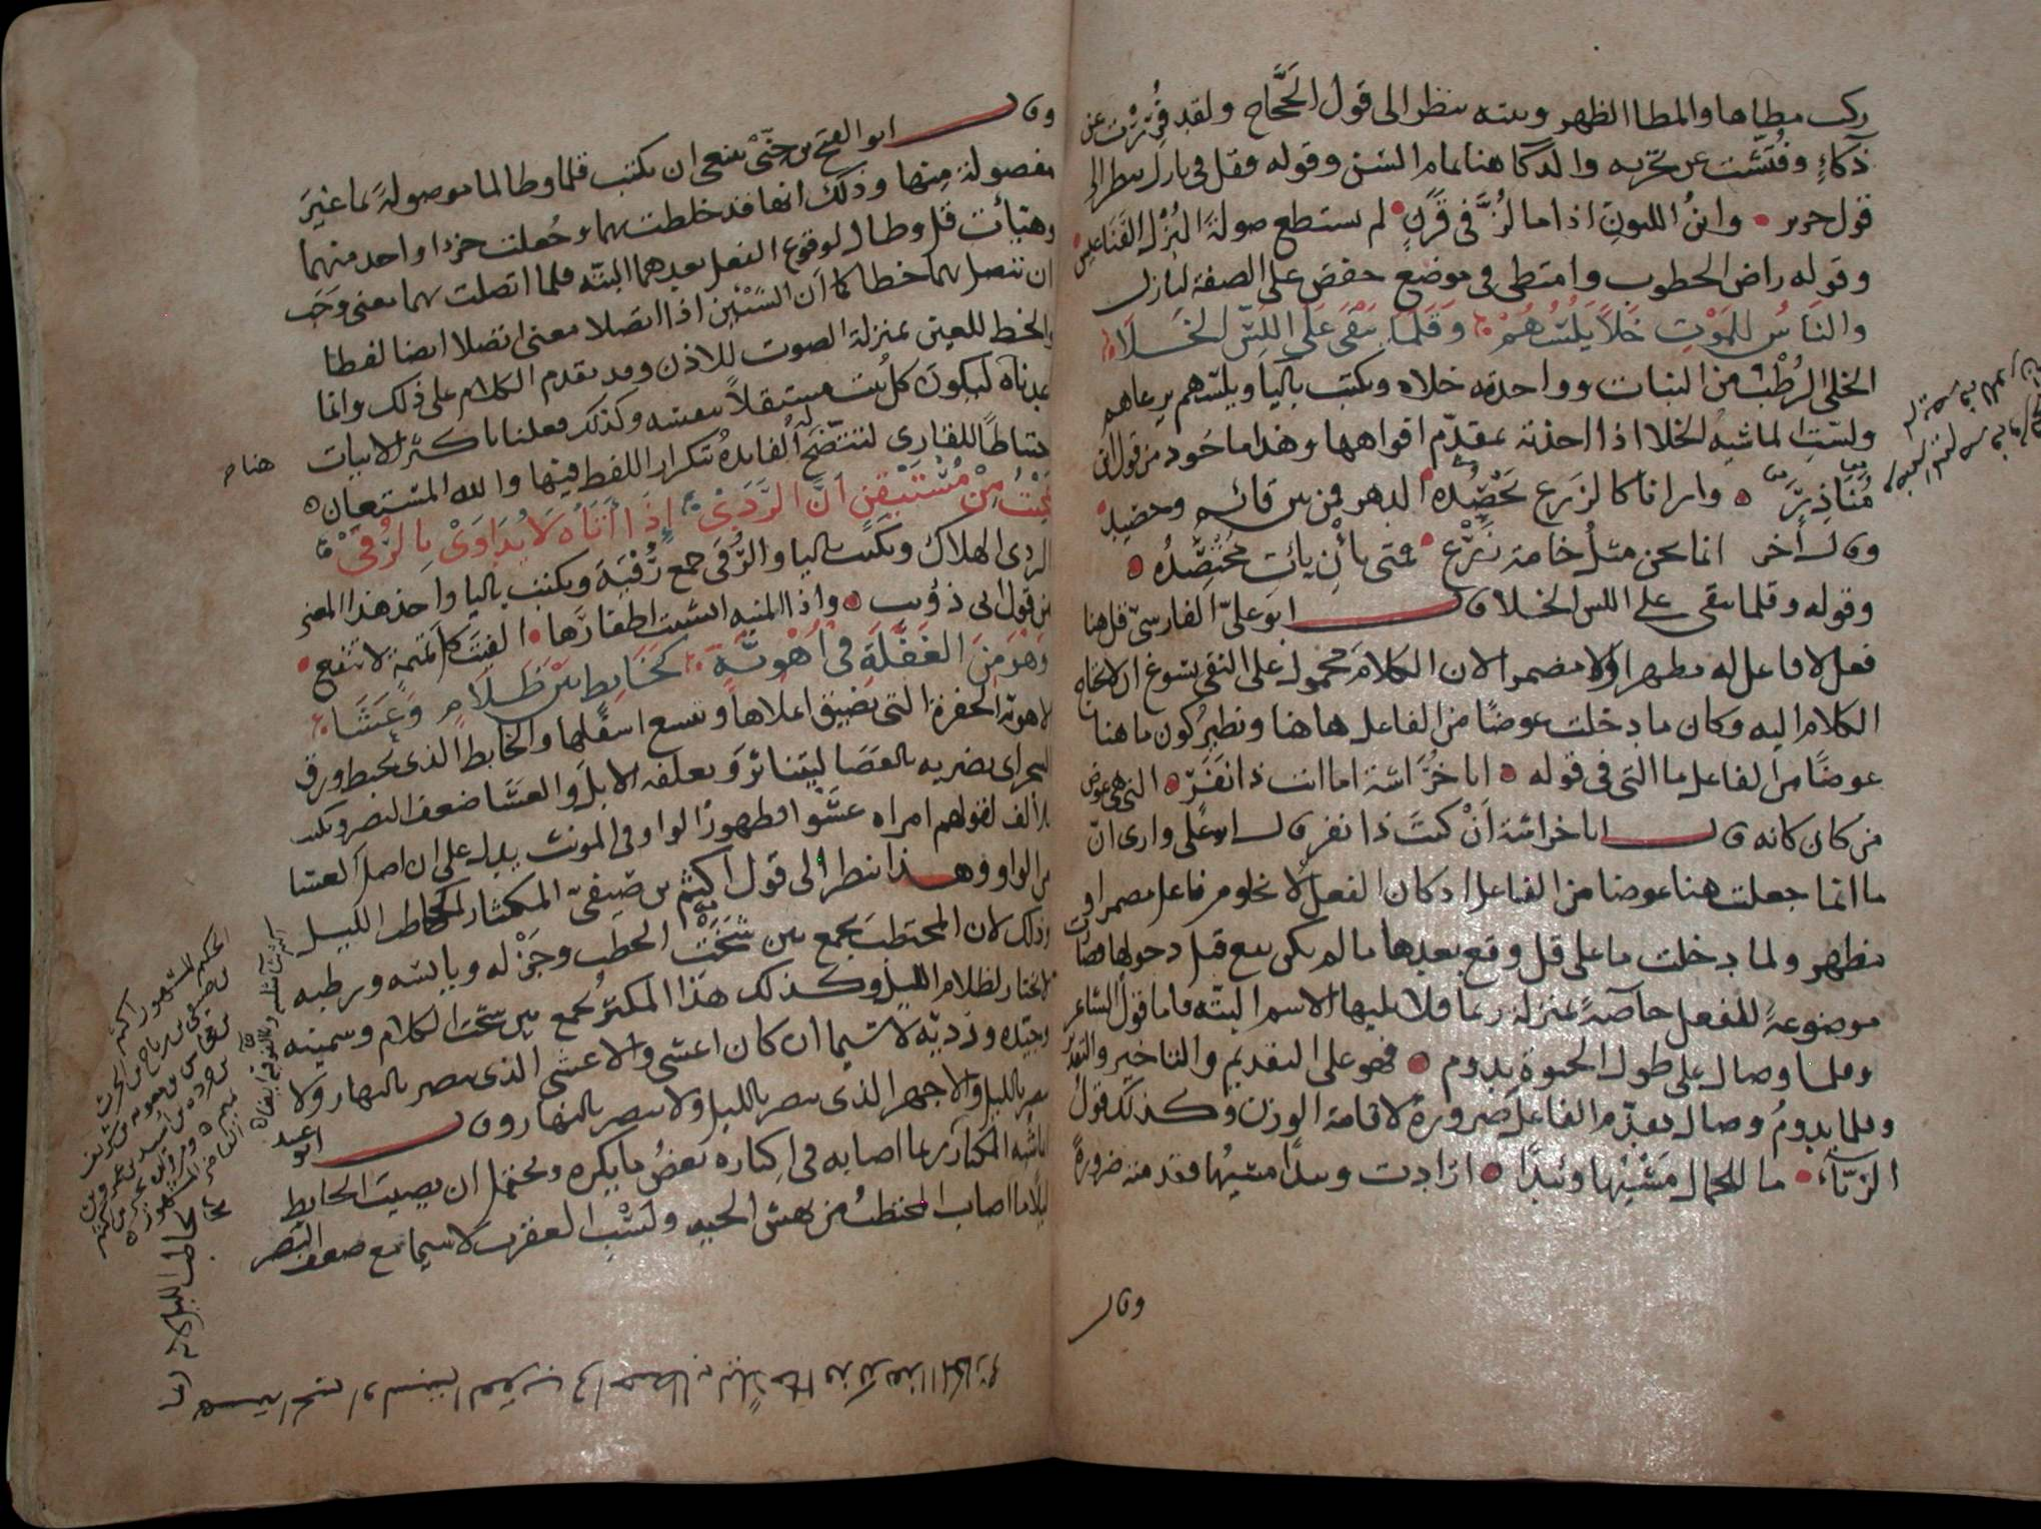 ركب مطاها والمطا الظهر وبيته ينظر الى قول الحَجَّاج ولقد فُرِرْت عن
ذكاءٍ وفُتّشت عن تجربه والذكا هنا تمام السن وقوله وقل في بازل ينظر الى
قول جرير • وابنُ اللبونِ اذا ما لُزَّ في قَرَنٍ • لم يستطع صولةَ البُزْلِ القَنَاعِيسِ
وقوله راض الخطوب وامتطى في موضع خفض على الصفة لبازل
والنَّاسُ للمَوْتِ خَلاً يَلُسُّهُمْ وَقَلَّمَا يَبْقَى عَلَى اللَّسِّ الخَلَا
الخلى الرُطْبُ من النبات وواحدته خلاه ويكتب باليا ويلسّهم يرعاهم
ولسّتِ الماشيهُ الخلا اذا اخذته بمقدّم افواهها وهذا ماخوذ من قول ابن
مُنَاذِرٍ • وارانا كالزرع يَحْصُدُه الدهر فمن بين قائمٍ وحصيدِ
وقال آخر انما نحن مثلُ خامة زَرْعٍ • فمتى يأْنِ يأتِ مُحْتَصِدُه •
وقوله وقلما يبقى على اللس الخلا قال ابو علىّ الفارسىّ قل هنا
فعل لا فاعل له مظهرا ولا مضمرا لان الكلامَ محمول على النفى يسوغ ان لاتحتاج
الكلام اليه وكان ما دخلت عوضًا من الفاعل هاهنا ونظيرُ كون ما هنا
عوضًا من الفاعل ما التى في قوله • ابا خُرَاشة اما انت ذا نَفَرٍ • التى هى عوض
من كان كانه قال ابا خراشة اَنْ كنتَ ذا نفر قال ابو على وارى انّ
ما انما جعلت هنا عوضا من الفاعل اذ كان الفعل لا يخلو من فاعل مضمر او
مظهر ولما دخلت ما على قل وقع بعدها ما لم يكن يقع قبل دخولها وصارت
موضوعةً للفعل خاصةً بمنزلة ربما فلا يليها الاسم البتّه فاما قول الشاعر
وقلما وصال على طول الحيوة يدوم • فهو على التقديم والتاخير والتقدير
وقلما يدومُ وصال فقدّم الفاعل ضرورةً لاقامة الوزن وكذلك قول
الزبّآءِ • ما للجمال مَشْيِها وئيدًا • ارادت وئيدًا مشيُها فقدمته ضرورةً
وقال
وقال ابو الفتح بن جِنّىْ ينبغى ان يكتب قلما وطالما موصولةً بما غيرَ
مفصولة منها وذلك انها قد خلطت بهما وجُعلت جزءا واحد منهما
وهَيَّأت قل وطال لوقوع الفعل بعدهما البتّه فلما اتصلت بهما معنى وَجَب
ان تتصل بهما خطا كما اَن الشيئين اذا اتصلا معنى اتصلا ايضا لفظا
والخط للعين بمنزلة الصوت للاذن وقد تقدم الكلام على ذلك وانما
اعدناه ليكون كل بيت مستقلاً بنفسه وكذلك فعلنا باكثر الابيات
احتياطًا للقارى لتتضح له الفايدةُ بتكرار اللفظ فيها والله المستعان
عَجِبْتُ مِنْ مُسْتَيْقِنٍ اَنَّ الرَّدَى اِذَا أَتَاهُ لَا يُدَاوَى بِالرُّقَى
الردى الهلاك ويكتب باليا والرُّقى جمع رُقْيَة ويكتب باليا واخذ هذا المعنى
من قول ابى ذؤيب • واذا المنيه انشبت اظفارَها • الفيتَ كل تميمةٍ لا تنفع •
وَهْوَ مِنَ الغَفْلَةِ فِى اُهْوِيَّةٍ كَخَابِطٍ بَيْنَ ظَلَامٍ وَعَشَا
الاهويّة الحفرة التى يضيق اعلاها ويتسع اسفلها والخابط الذى يخبط ورق
الشجر اى يضربه بالعَصَا ليتناثرَ ويعلفه الابلَ والعشا ضعف البصر ويكتب
بالألف لقولهم امراه عشْوا فظهورُ الواو فى المونث يدل على ان اصل العشا
من الواو وهذا ينظر الى قول اكثم بن صَيفىّ المكثار كحاطب الليل
وذلك لان المحتطبَ يجمع بين شَخْتِ الحطب وجَزْله ويابسه ورطبه
لا يختار لظلام الليل وكذلك هذا المكثر يجمع بين سخت الكلام وسمينه
وجيّده ورديّه لا سّيما ان كان اعشى والاعشى الذى يبصر بالنهار ولا
يبصر بالليل والاجهر الذى يبصر بالليل ولا يبصر بالنهار وقال ابو عبيد
انما شُبّه المكثار ربما اصابه فى اكثاره بعضُ ما يكره ويحتمل ان يصيبَ الخابط
ليلا ما اصاب المحتطبُ من نهش الحيه ولَسْبِ العقرب لاسيما مع ضعف البصر
هنا
الحكيم المشهور اكثم
بن صيفى بن رياح بن الحرث
كحاطب الليل